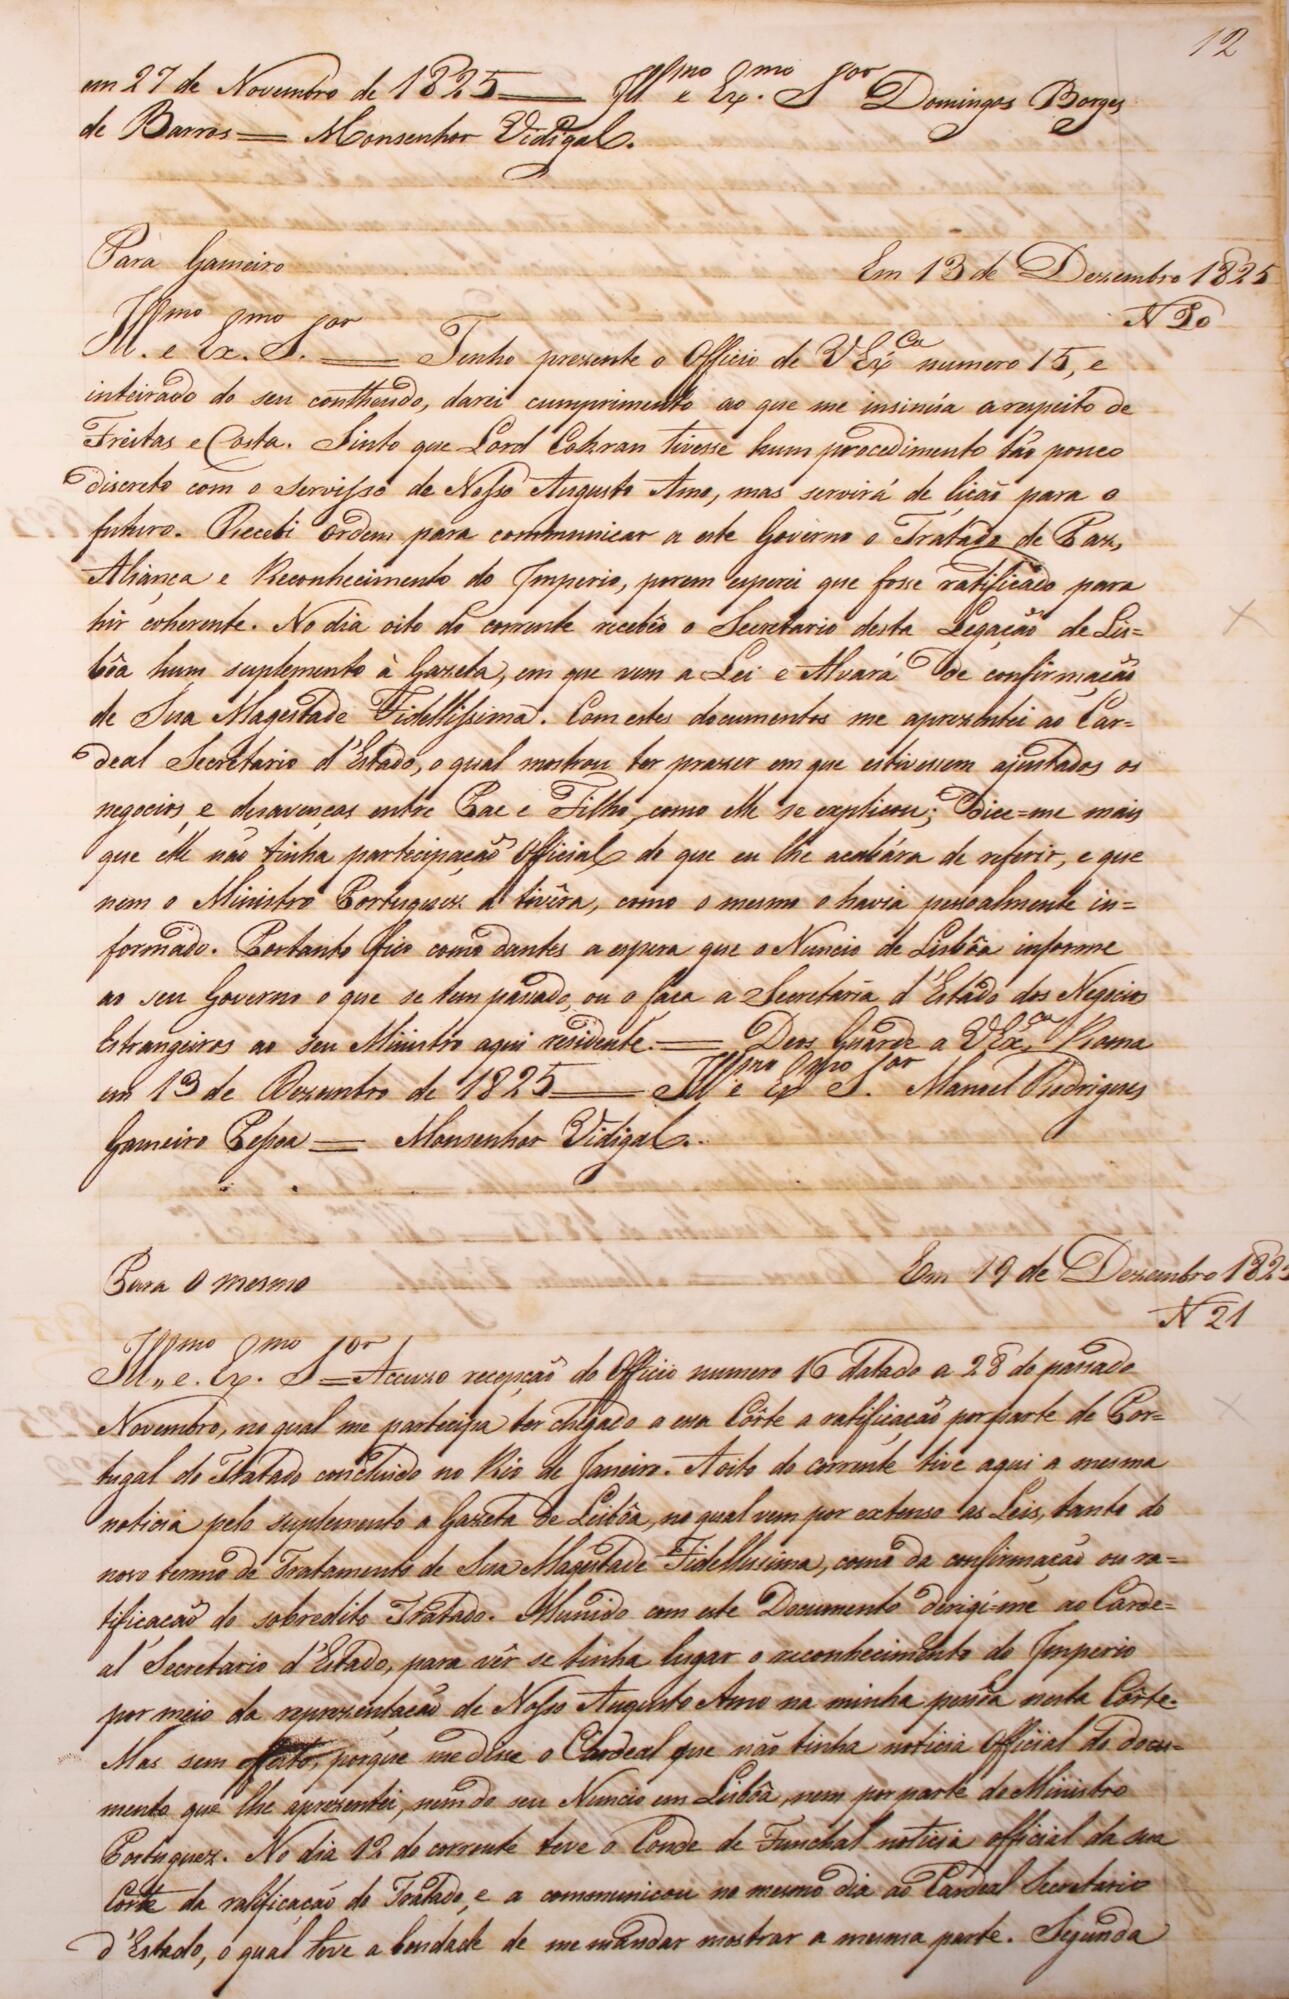 12
em 27 de Novembro de 1825 == Ill.mo e Ex.mo S.or Domingos Borges
de Barros == Monsenhor Vidigal.
Para Gameiro
Em 13 de Dezembro 1825
N 20
Ill.mo e Ex.mo S.or == Tenho prezente o Officio de V Ex.ca numero 15, e
inteirado do seu contheudo, darei cumprimento ao que me insinúa a respeito de
Freitas e Costa. Sinto que Lord Cohran tivesse hum procedimento tão pouco
discreto com o servisso de Nosso Augusto Amo, mas servirá de lição para o
futuro. Recebi ordem para communicar a este Governo o Tratado de Paz,
Aliança e Reconhecimento do Imperio, porem esperei que fosse ratificado para
hir coherente. No dia oito do corrente recebêo o Secretario desta Legação de Lis=
bôa hum suplemento à Gazeta, em que vem a Lei e Alvará de confirmação
de Sua Magestade Fidellissima. Com estes documentos me aprezentei ao Car=
deal Secretario d'Estado, o qual mostrou ter prazer em que estivessem ajustados os
negocios, e desavenças entre Pae e Filho, como elle se explicou; Dice=me mais
que elle não tinha participação Official do que eu lhe acabára de referir, e que
nem o Ministro Portuguez a tivéra, como o mesmo o havia pessoalmente in=
formado. Portanto fico como dantes a espera que o Nuncio de Lisbôa informe
ao seu Governo o que se tem passado, ou o faça a Secretaria d'Estado dos Negocios
Estrangeiros ao seu Ministro aqui residente. == Deos Guarde a V Ex.ca Roma
em 13 de Dezembro de 1825 == Ill.mo e Ex.mo S.or Manoel Rodrigues
Gameiro Pessoa == Monsenhor Vidigal.
Para o mesmo
Em 19 de Dezembro 1825
N 21
Ill.mo e Ex.mo S.or = Accuzo recepção do Officio numero 16 datado a 28 do passado
Novembro, no qual me participa ter chegado a essa Côrte a ratificação por parte de Por=
tugal do Tratado concluido no Rio de Janeiro. A oito do corrente tive aqui a mesma
noticia pelo suplemento a Gazeta de Lisbôa, no qual vem por extenso as Leis, tanto do
novo termo de Tratamento de Sua Magestade Fidellissima, como da confirmação ou ra=
tificação do sobredito Tratado. Munido com este Documento dirigi=me ao Carde=
al Secretario d'Estado, para vêr se tinha lugar o reconhecimento do Imperio
por meio da reprezentação de Nosso Augusto Amo na minha pessôa nesta Côrte.
Mas sem effeito, porque me disse o Cardeal que não tinha noticia Official do docu=
mento que lhe aprezentei, nem do seu Nuncio em Lisbôa, nem por parte do Ministro
Portuguez. No dia 12 do corrente teve o Conde de Funchal noticia official da sua
Côrte da ratificação do Tratado, e a communicou no mesmo dia ao Cardeal Secretario
d'Estado, o qual teve a bondade de me mandar mostrar a mesma parte. Segunda